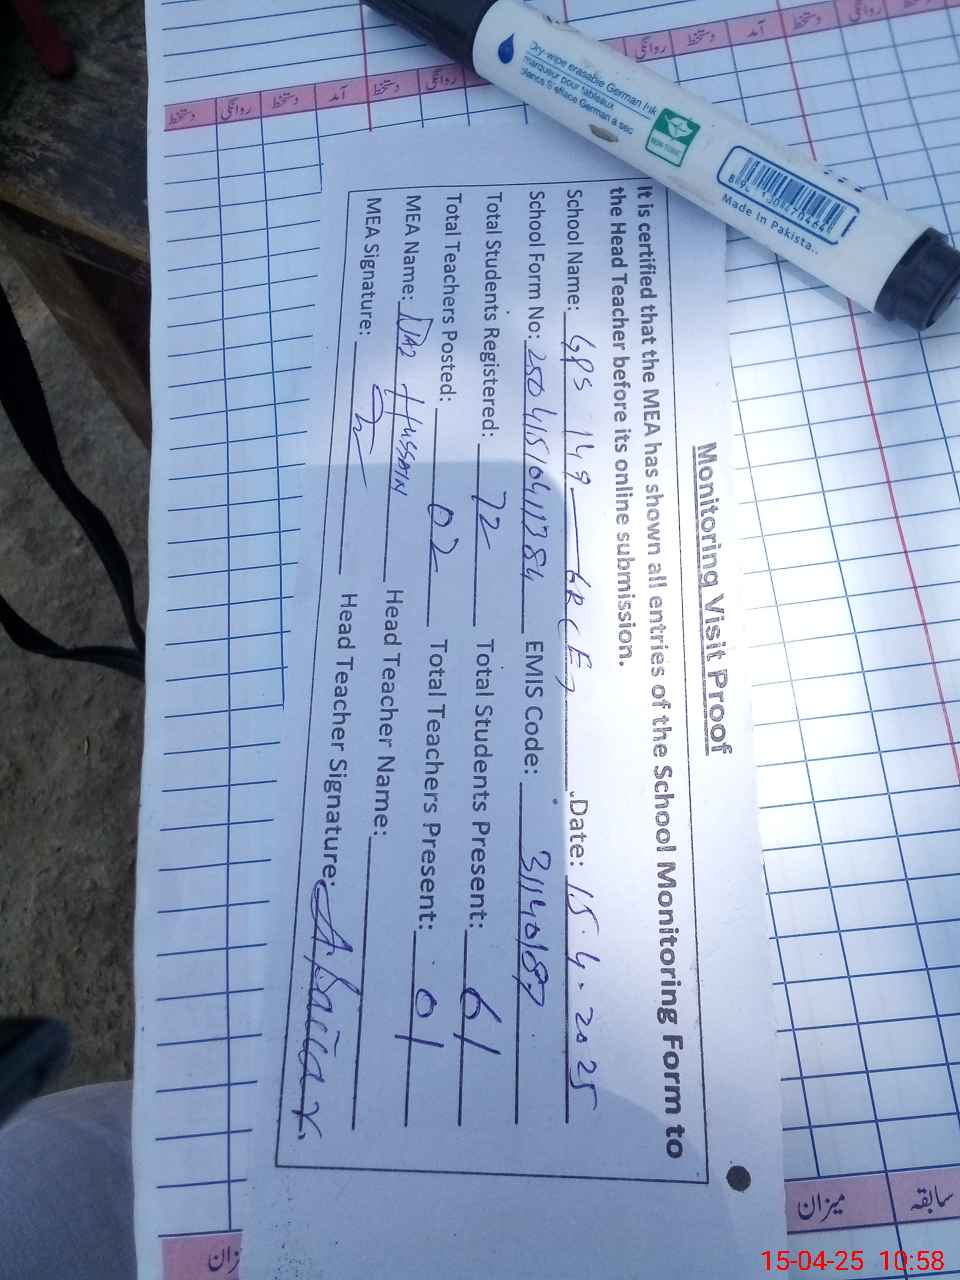 Monitoring Visit Proof
It is certified that the MEA has shown all entries of the School Monitoring Form to
the Head Teacher before its online submission.
School Name: GPS 149 GB (E) Date: 15.4.2025
School Form No: EMIS Code: 31140187
Total Students Registered: 72 Total Students Present: 61
Total Teachers Posted: 02 Total Teachers Present: 01
MEA Name: Hussain Head Teacher Name:
MEA Signature: Head Teacher Signature:
Dry-wipe erasable German Ink
marqueur pour tableaux
NON-TOXIC
Made in Pakista..
دستخط روانگی دستخط آمد دستخط روانگی
روانگی دستخط آمد دستخط روانگی
میزان سابقہ
15-04-25 10:58